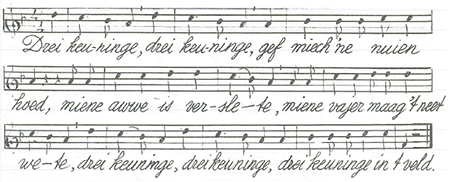 Drei keu-ninge, drei keu-ninge, gef miech 'ne nuien
hoed, miene auwe is ver-sle-te, miene vajer maag 't neet
we-te, drei keuninge, drei keuninge, drei keuninge in t veld.